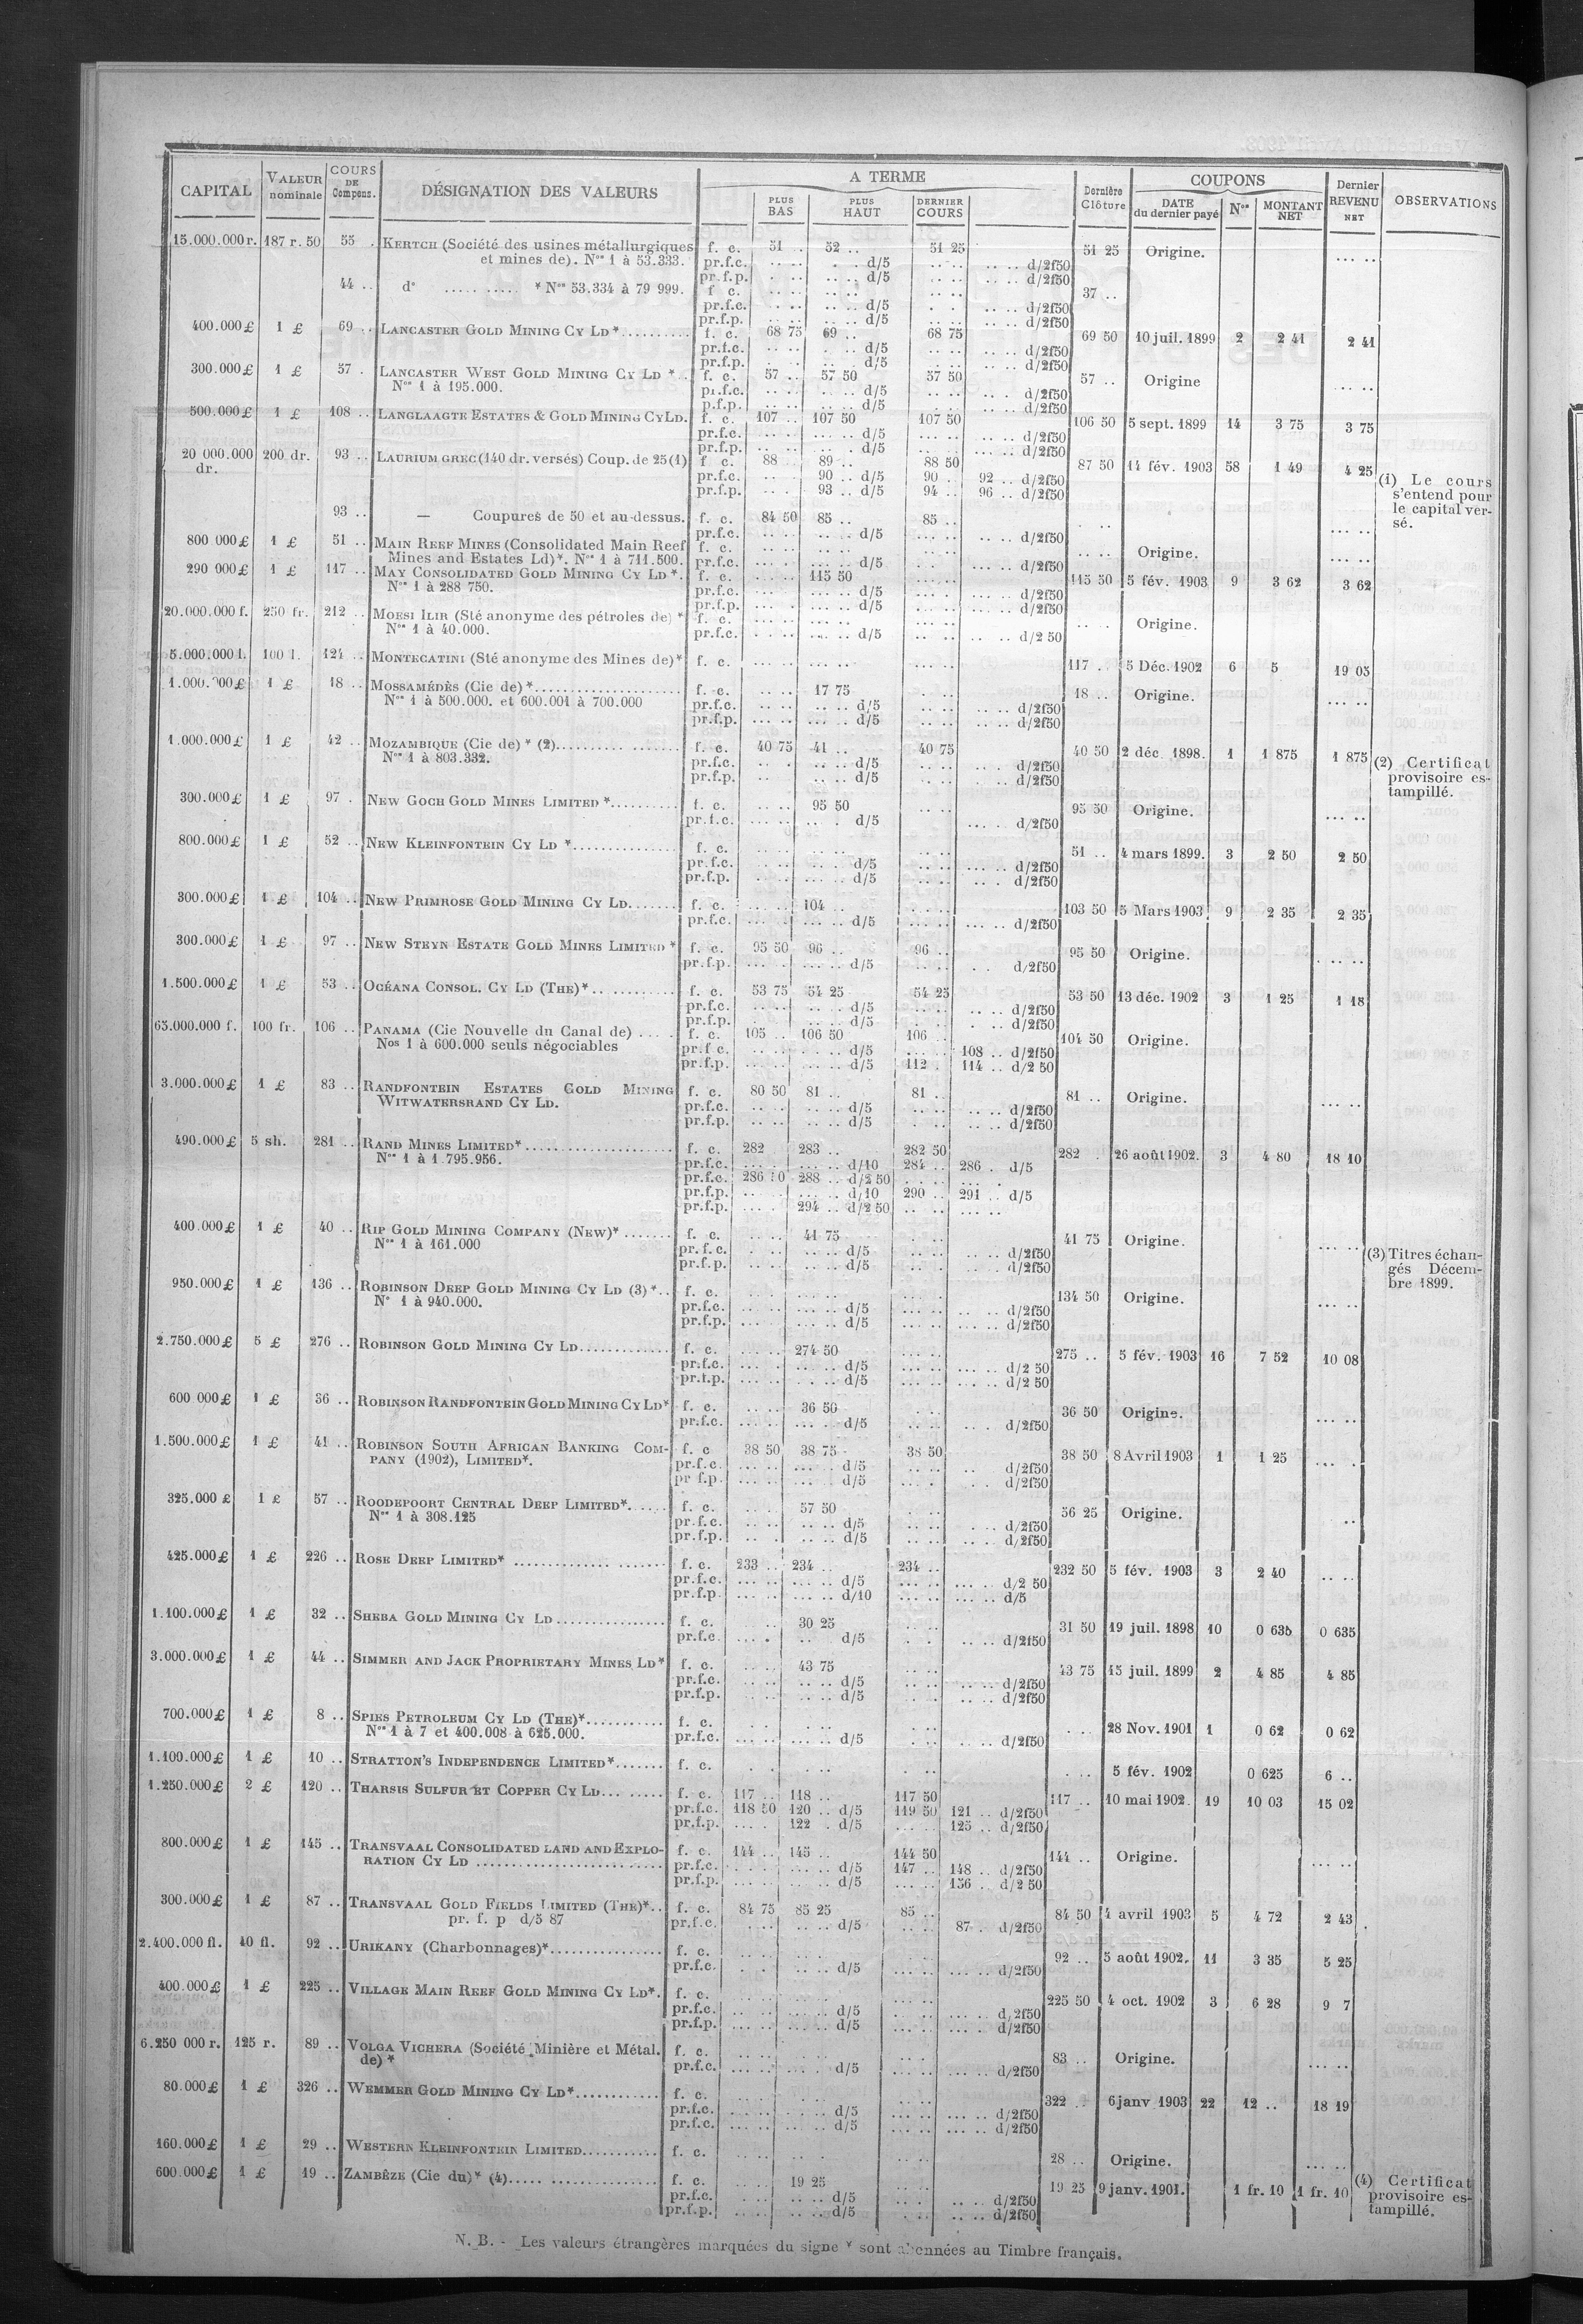 CAPITAL VALEUR nominale COURS DE Compens. DÉSIGNATION DES VALEURS A TERME Dernière Clôture COUPONS Dernier REVENU NET OBSERVATIONS
PLUS BAS PLUS HAUT DERNIER COURS DATE du dernier payé Nos MONTANT NET
15.000.000 r. 187 r. 50 55 . KERTCH (Société des usines métallurgiques f. c. 51 . 52 .. 51 25 51 25 Origine. ... ..
et mines de). Nos 1 à 53.333. pr.f.c. .. .. . .. d/5 .. .. .. .. d/2f50
pr.f.p. . .. .. .. d/5 .. .. .. .. d/2f50
44 .. do ..... ..... * Nos 53.334 à 79 999. f c. .. .. .. .. .. .. 37 ..
pr.f.c. .. .. .. .. d/5 . . .. .. d/2f50
pr.f.p. .. .. .. .. d/5 .. .. .. .. d/2f50
400.000 £ 1 £ 69 .. LANCASTER GOLD MINING CY LD *.......... f. c. 68 75 69 .. 68 75 69 50 10 juil. 1899 2 2 41 2 41
pr.f.c. .. .. . .. d/5 .. .. .. .. d/2f50
pr.f.p. .. .. .. d/5 .. .. .. .. d/2f50
300.000 £ 1 £ 57 . LANCASTER WEST GOLD MINING CY LD *.. f. c. 57 .. 57 50 57 50 57 .. Origine ... ..
Nos 1 à 195.000. pr.f.c. .. .. . .. d/5 .. .. .. . d/2f50
p.f.p. .. .. .. .. d/5 . . .. .. d/2f50
500.000 £ 1 £ 108 .. LANGLAAGTE ESTATES & GOLD MINING CY LD. f. c. 107 .. 107 50 107 50 106 50 5 sept. 1899 14 3 75 3 75
pr.f.c. .. . ... .. d/5 ... .. .. .. d/2f50
pr.f.p. .. .. .. . d/5 .. .. ... .. d/2f50
20 000.000 dr. 200 dr. 93 .. LAURIUM GREC (140 dr. versés) Coup. de 25 (1) f c. 88 89 .. 88 50 87 50 14 fév. 1903 58 1 49 4 25
pr.f.c. .. . 90 .. d/5 90 . 92 .. d/2f50
pr.f.p. .. . 93 .. d/5 94 .. 96 .. d/2f50
(1) Le cours
s'entend pour
le capital versé.
93 .. — Coupures de 50 et au-dessus. f. c. 84 50 85 .. 85 .. . .. ... ..
pr.f.c. .. .. .. .. d/5 .. .. .. .. d/2f50
800 000 £ 1 £ 51 .. MAIN REEF MINES (Consolidated Main Reef f. c. .. .. .. .. .. .. .. .. Origine. ... ..
Mines and Estates Ld)*. Nos 1 à 711.500. pr.f.c. ... . ... .. d/5 .. . ... .. d/2f50
290 000 £ 1 £ 117 .. MAY CONSOLIDATED GOLD MINING CY LD *. f. c. ... . 115 50 ... . 115 50 5 fév. 1903 9 3 62 3 62
Nos 1 à 288 750. pr.f.c. ... . ... .. d/5 ... .. ... .. d/2f50
pr.f.p. ... . ... .. d/5 ... .. ... .. d/2f50
20.000.000 f. 250 fr. 212 .. MOESI ILIR (Sté anonyme des pétroles de) * f. c. ... .. ... .. .. .. .. . Origine.
Nos 1 à 40.000. pr.f.c. . .. ... .. d/5 .. .. .. .. d/2 50
5.000.000 l. 100 l. 124 .. MONTECATINI (Sté anonyme des Mines de)* f. c. ... .. ... .. ... .. 117 .. 5 Déc. 1902 6 5 19 05
1 £ 18 .. MOSSAMÉDÈS (Cie de) *..................... f. c. .. .. 17 75 .. .. 18 .. Origine. ... ..
Nos 1 à 500.000. et 600.001 à 700.000 pr.f.c. .. .. .. .. d/5 .. .. .. .. d/2f50
pr.f.p. ... .. ... .. d/5 .. .. .. .. d/2f50
1.000.000 £ 1 £ 42 .. MOZAMBIQUE (Cie de) * (2).......... ....... f. c. 40 75 41 .. 40 75 40 50 2 déc. 1898. 1 1 875 1 875
Nos 1 à 803.332. pr.f.c. .. . .. .. d/5 .. .. .. . d/2f50
pr.f.p. .. .. .. d/5 .. .. .. .. d/2f50
(2) Certificat
provisoire estampillé.
300.000 £ 1 £ 97 . NEW GOCH GOLD MINES LIMITED *.......... f. c. .. .. 95 50 .. .. 95 50 Origine. ... ..
pr.f.c. ... .. .. . d/5 ... . d/2f50
800.000 £ 1 £ 52 .. NEW KLEINFONTEIN CY LD *............... f. c. .. .. .. .. .. .. 51 .. 4 mars 1899. 3 2 50 2 50
pr.f.c. .. .. .. .. d/5 .. .. ... .. d/2f50
pr.f.p. .. .. .. .. d/5 .. .. .. . d/2f50
300.000 £ 1 £ 104 .. NEW PRIMROSE GOLD MINING CY LD....... f. c. ... .. 104 .. . .. 103 50 5 Mars 1903 9 2 35 2 35
pr.f.c. ... . ... .. d/5 .. .. ... .. d/2f50
300.000 £ 1 £ 97 .. NEW STEYN ESTATE GOLD MINES LIMITED * f. c. 95 50 96 .. 96 .. 95 50 Origine. . .. ..
pr.f.p. ... . ... .. d/5 .. .. . . d/2f50
1.500.000 £ 1 £ 53 .. OCÉANA CONSOL. CY LD (THE)*.. .......... f. c. 53 75 54 25 54 25 53 50 13 déc. 1902 3 1 25 1 18
pr.f.c. .. .. .. .. d/5 .. .. .. .. d/2f50
pr.f.p. . .. .. d/5 . . . .. d/2f50
65.000.000 f. 100 fr. 106 .. PANAMA (Cie Nouvelle du Canal de) .. .. f. c. 105 .. 106 50 106 .. 104 50 Origine.
Nos 1 à 600.000 seuls négociables pr.f c. .. .. . .. d/5 ... . 108 .. d/2f50
pr.f.p. ... .. ... .. d/5 112 . 114 .. d/2 50
3.000.000 £ 1 £ 83 .. RANDFONTEIN ESTATES GOLD MINING f. c. 80 50 81 .. 81 .. 81 .. Origine. ... ..
WITWATERSRAND CY LD. pr.f.c. .. .. .. .. d/5 .. .. .. .. d/2f50
pr.f.p. .. .. .. .. d/5 .. .. .. .. d/2f50
490.000 £ 5 sh. 281 .. RAND MINES LIMITED*..................... f. c. 282 283 .. 282 50 282 . 26 août 1902. 3 4 80 18 10
Nos 1 à 1.795.956. pr.f.c. ... . ... .. d/10 284 .. 286 . d/5
pr.f.c. 286 50 288 .. d/2 50 . .. ... .
pr.f.p. .. . ... .. d/10 290 .. 291 .. d/5
pr.f.p. ... . 294 .. d/2 50 .. .. ... ..
400.000 £ 1 £ 40 .. RIP GOLD MINING COMPANY (NEW)* ....... f. c. .. .. 41 75 . .. 41 75 Origine. ... ..
Nos 1 à 161.000 pr. f. c. . .. .. .. d/5 .. .. .. .. d/2f50
pr.f.p. .. .. .. .. d/5 .. . .. .. d/2f50
(3) Titres échangés
Décembre 1899.
950.000 £ 1 £ 136 .. ROBINSON DEEP GOLD MINING CY LD (3) *.. f. c. ... . ... .. ... . 134 50 Origine. ... ..
No 1 à 940.000. pr.f.c. ... .. ... .. d/5 ... .. .. .. d/2f50
pr.f.p. ... .. ... .. d/5 ... .. ... .. d/2f50
2.750.000 £ 5 £ 276 .. ROBINSON GOLD MINING CY LD............ f. c. ... .. 274 50 ... .. 275 .. 5 fév. 1903 16 7 52 10 08
pr.f.c. ... . ... .. d/5 ... .. ... .. d/2 50
pr.f.p. ... .. . .. d/5 ... .. ... .. d/2 50
600 000 £ 1 £ 36 .. ROBINSON RANDFONTEIN GOLD MINING CY LD* f. c. .. .. 36 50 . .. 36 50 Origine. ... ..
pr.f.c. .. .. .. .. d/5 .. . .. .. d/2f50
1.500.000 £ 1 £ 41 .. ROBINSON SOUTH AFRICAN BANKING COM- f. c 38 50 38 75 38 50 38 50 8 Avril 1903 1 1 25 ... .
PANY (1902), LIMITED*. pr.f.c. ... .. ... . d/5 .. .. .. d/2f50
pr f.p. ... .. ... .. d/5 .. .. . . d/2f50
325.000 £ 1 £ 57 .. ROODEPOORT CENTRAL DEEP LIMITED*...... f. c. .. . 57 50 .. .. 56 25 Origine. ..
Nos 1 à 308.125 pr.f.c. .. .. .. .. d/5 .. .. . .. d/2f50
pr.f.p. .. . .. .. d/5 .. .. .. .. d/2f50
425.000 £ 1 £ 226 .. ROSE DEEP LIMITED* .............. ....... f. c. 233 .. 234 .. 234 .. 232 50 5 fév. 1903 3 2 40 .. ..
pr.f.c. ... .. ... .. d/5 ... .. ... .. d/2 50
pr.f.p ... .. ... .. d/10 ... .. ... .. d/5
1.100.000 £ 1 £ 32 .. SHEBA GOLD MINING CY LD................ f. c. .. .. 30 25 .. .. 31 50 19 juil. 1898 10 0 635 0 635
pr.f.c .. . .. d/5 . . .. .. d/2f50
3.000.000 £ 1 £ 44 .. SIMMER AND JACK PROPRIETARY MINES LD* f. c. .. .. 43 75 .. .. 43 75 15 juil. 1899 2 4 85 4 85
pr.f.c. .. .. .. .. d/5 .. .. .. .. d/2f50
pr.f.p. .. .. .. .. d/5 . .. .. .. d/2f50
700.000 £ 1 £ 8 .. SPIES PETROLEUM CY LD (THE)*............ f. c. . . . .. .. .. . .. 28 Nov. 1901 1 0 62 0 62
Nos 1 à 7 et 400.008 à 625.000. pr.f.c. ... .. ... .. d/5 . .. .. .. d/2f50
1.100.000 £ 1 £ 10 .. STRATTON'S INDEPENDENCE LIMITED*....... f. c. . . . .. . .. . .. 5 fév. 1902 0 625 6 ..
1.250.000 £ 2 £ 120 .. THARSIS SULFUR ET COPPER CY LD... ..... f. c. 117 .. 118 .. 117 50 117 .. 10 mai 1902. 19 10 03 15 02
pr.f.c. 118 50 120 .. d/5 119 50 121 .. d/2f50
pr.f.p. ... . 122 . d/5 ... .. 125 .. d/2f50
800.000 £ 1 £ 145 .. TRANSVAAL CONSOLIDATED LAND AND EXPLO- f. c. 144 .. 145 .. 144 50 144 .. Origine. ... ..
RATION CY LD ........................... pr.f.c. . .. . .. .. d/5 147 .. 148 .. d/2f50
pr.f.p. ... .. .. .. d/5 ... .. 156 .. d/2 50
300.000 £ 1 £ 87 .. TRANSVAAL GOLD FIELDS LIMITED (THE)*.. f. c. 84 75 85 25 85 .. 84 50 4 avril 1903 5 4 72 2 43
pr. f. p d/5 87 pr.f.c. . .. .. .. d/5 .. . 87 . d/2f50
2.400.000 fl. 40 fl. 92 .. URIKANY (Charbonnages)*................ f. c. 92 .. 5 août 1902. 11 3 35 5 25
pr.f.c. . . .. .. d/5 ... .. ... .. d/2f50
400.000 £ 1 £ 225 .. VILLAGE MAIN REEF GOLD MINING CY LD*. f. c. ... .. ... .. ... .. 225 50 4 oct. 1902 3 6 28 9 7
pr.f.c. .. .. ... .. d/5 ... .. ... .. d/2f50
pr.f.p. ... .. ... .. d/5 ... .. ... .. d/2f50
6.250 000 r. 125 r. 89 .. VOLGA VICHERA (Société Minière et Métal. f. c. .. .. .. .. .. . 83 .. Origine. ... ..
de) * pr.f.c. ... .. ... .. d/5 ... .. ... .. d/2f50
80.000 £ 1 £ 326 .. WEMMER GOLD MINING CY LD*............ f. c. 322 .. 6 janv 1903 22 12 .. 18 19
pr.f.c. ... .. ... .. d/5 ... .. ... .. d/2f50
pr.f.c. ... .. ... .. d/5 ... .. ... .. d/2f50
160.000 £ 1 £ 29 .. WESTERN KLEINFONTEIN LIMITED........... f. c. .. .. .. .. .. .. 28 .. Origine. ... ..
600.000 £ 1 £ 19 .. ZAMBÈZE (Cie du)* (4)..... ................ f. c. .. .. 19 25 .. .. 19 25 9 janv. 1901. 1 fr. 10 1 fr. 10
pr.f.c. .. .. .. .. d/5 .. . .. .. d/2f50
pr.f.p. .. .. .. .. d/5 . .. .. .. d/2f50
(4) Certificat
provisoire estampillé.
N. B. - Les valeurs étrangères marquées du signe * sont abonnées au Timbre français.